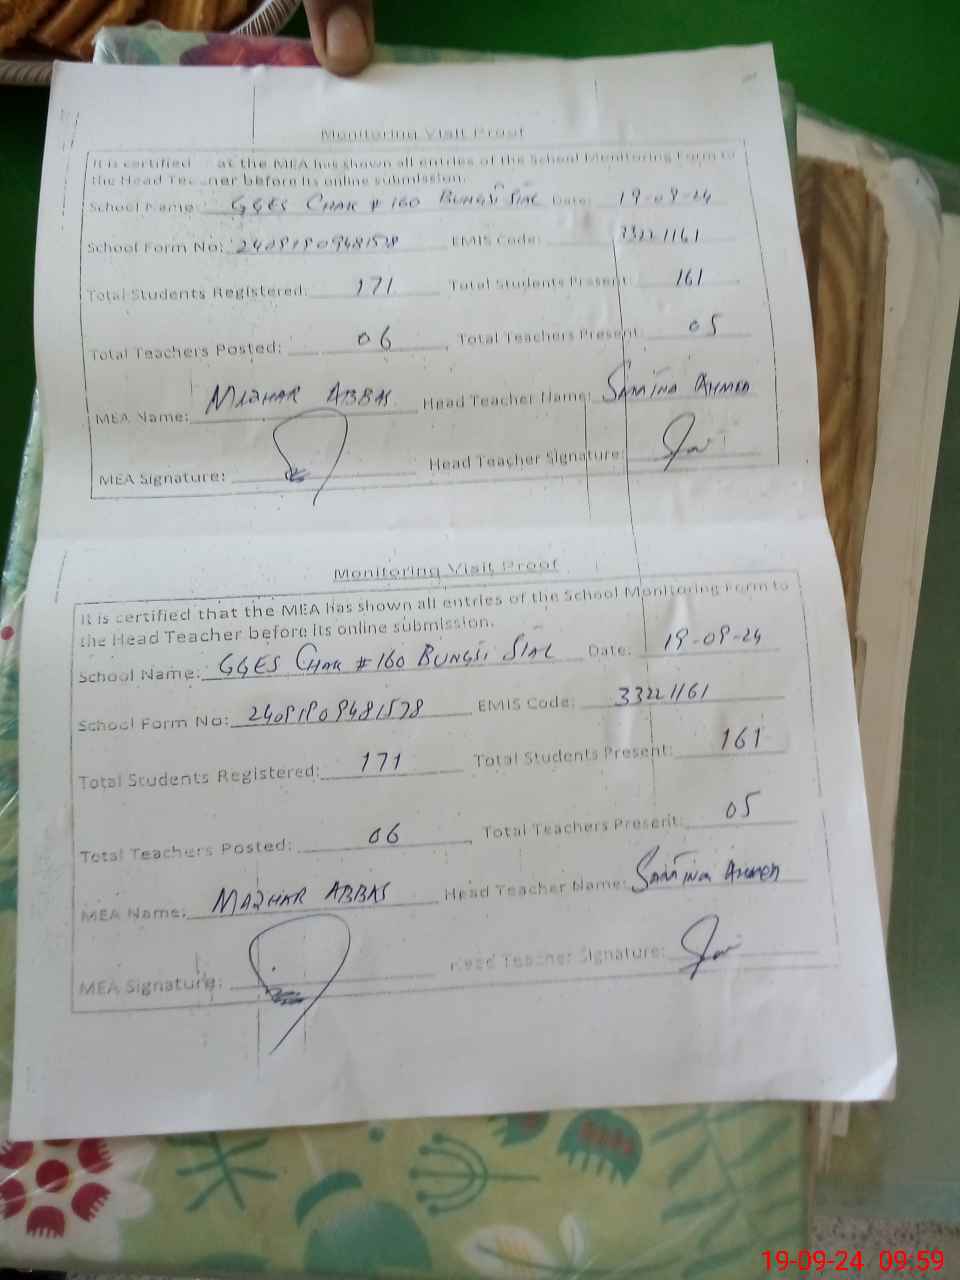 Monitoring Visit Proof
It is certified at the MEA has shown all entries of the School Monitoring Form to
the Head Teacher before its online submission.
School Name: GGES CHAK # 160 BUNGSI SIAL Date: 19-09-24
School Form No: EMIS Code: 33221161
Total Students Registered: 171 Total Students Present: 161
Total Teachers Posted: 06 Total Teachers Present: 05
MEA Name: MAZHAR ABBAS Head Teacher Name: SAMINA AHMED
MEA Signature: Head Teacher Signature:
Monitoring Visit Proof
It is certified that the MEA has shown all entries of the School Monitoring Form to
the Head Teacher before its online submission.
School Name: GGES CHAK # 160 BUNGSI SIAL Date: 19-09-24
School Form No: EMIS Code: 33221161
Total Students Registered: 171 Total Students Present: 161
Total Teachers Posted: 06 Total Teachers Present: 05
MEA Name: MAZHAR ABBAS Head Teacher Name: SAMINA AHMED
MEA Signature: Head Teacher Signature:
19-09-24 09:59